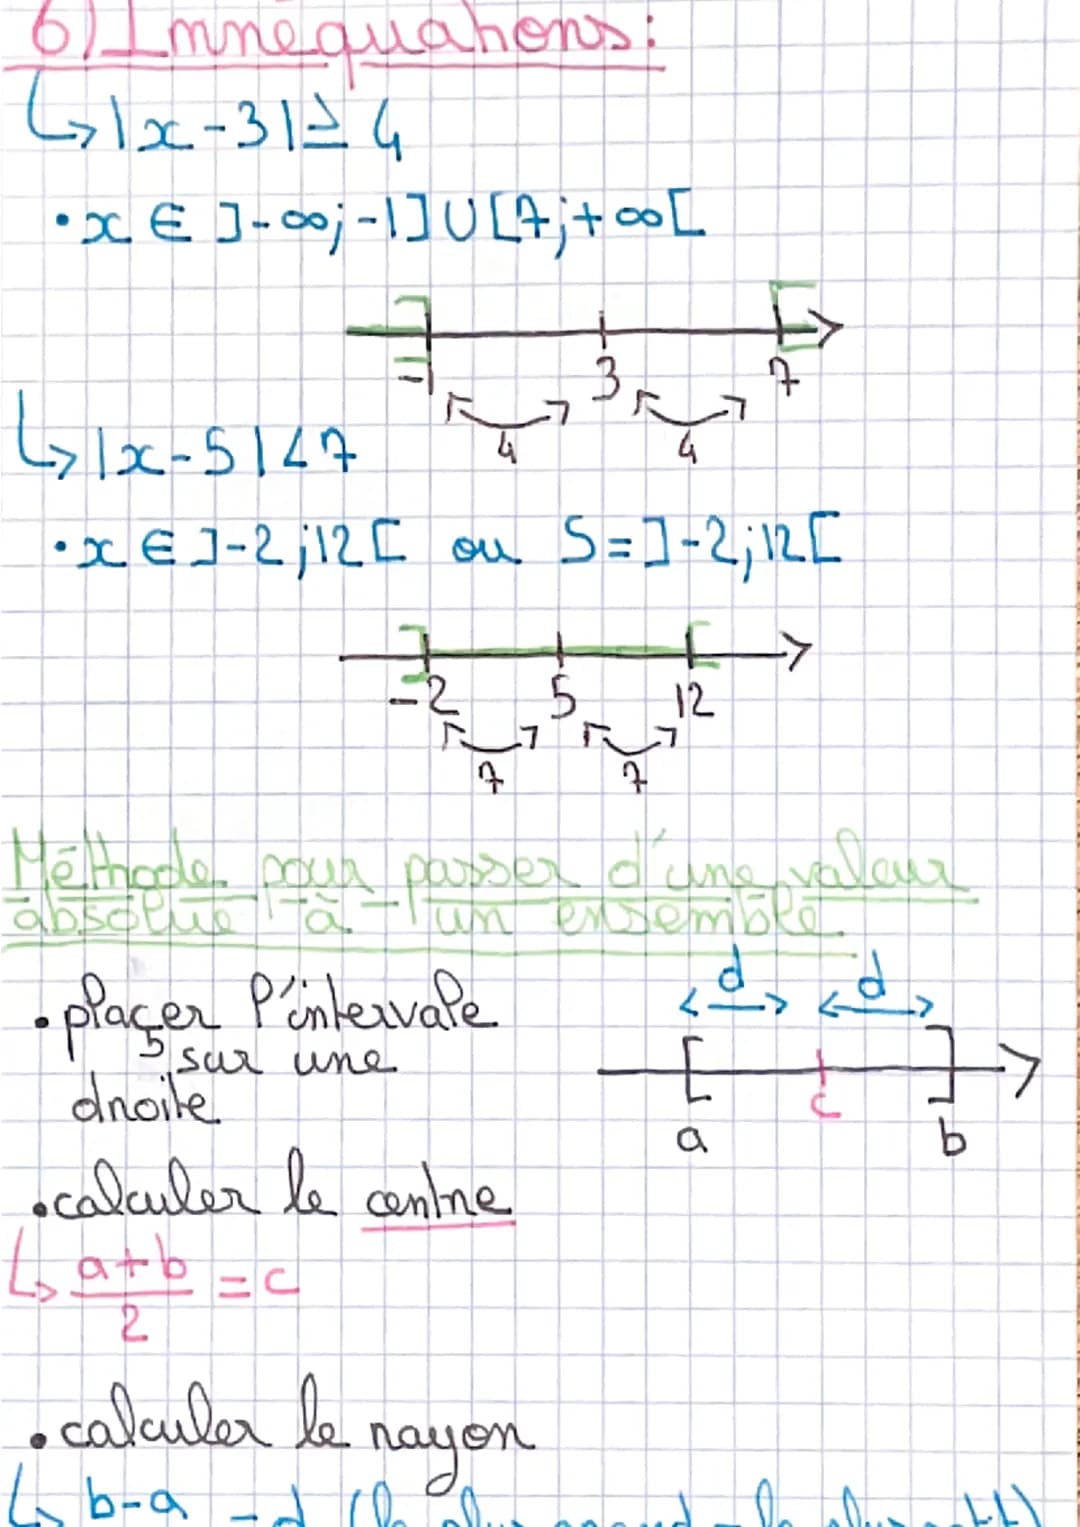 6) Innéquations:
↳ |x-3| ≥ 4
• x ∈ ]-∞; -1] U [7; +∞[
-1 3 7
4 4
↳ |x-5| < 7
• x ∈ ]-2; 12[ ou S = ]-2; 12[
-2 5 12
7 7
Méthode pour passer d'une valeur
absolue à un ensemble.
• placer l'intervale
↳ sur une
droite
d d
c
a b
• calculer le centre
↳ a+b/2 = c
• calculer le rayon
↳ b-a = d (le plus grand - le plus petit)